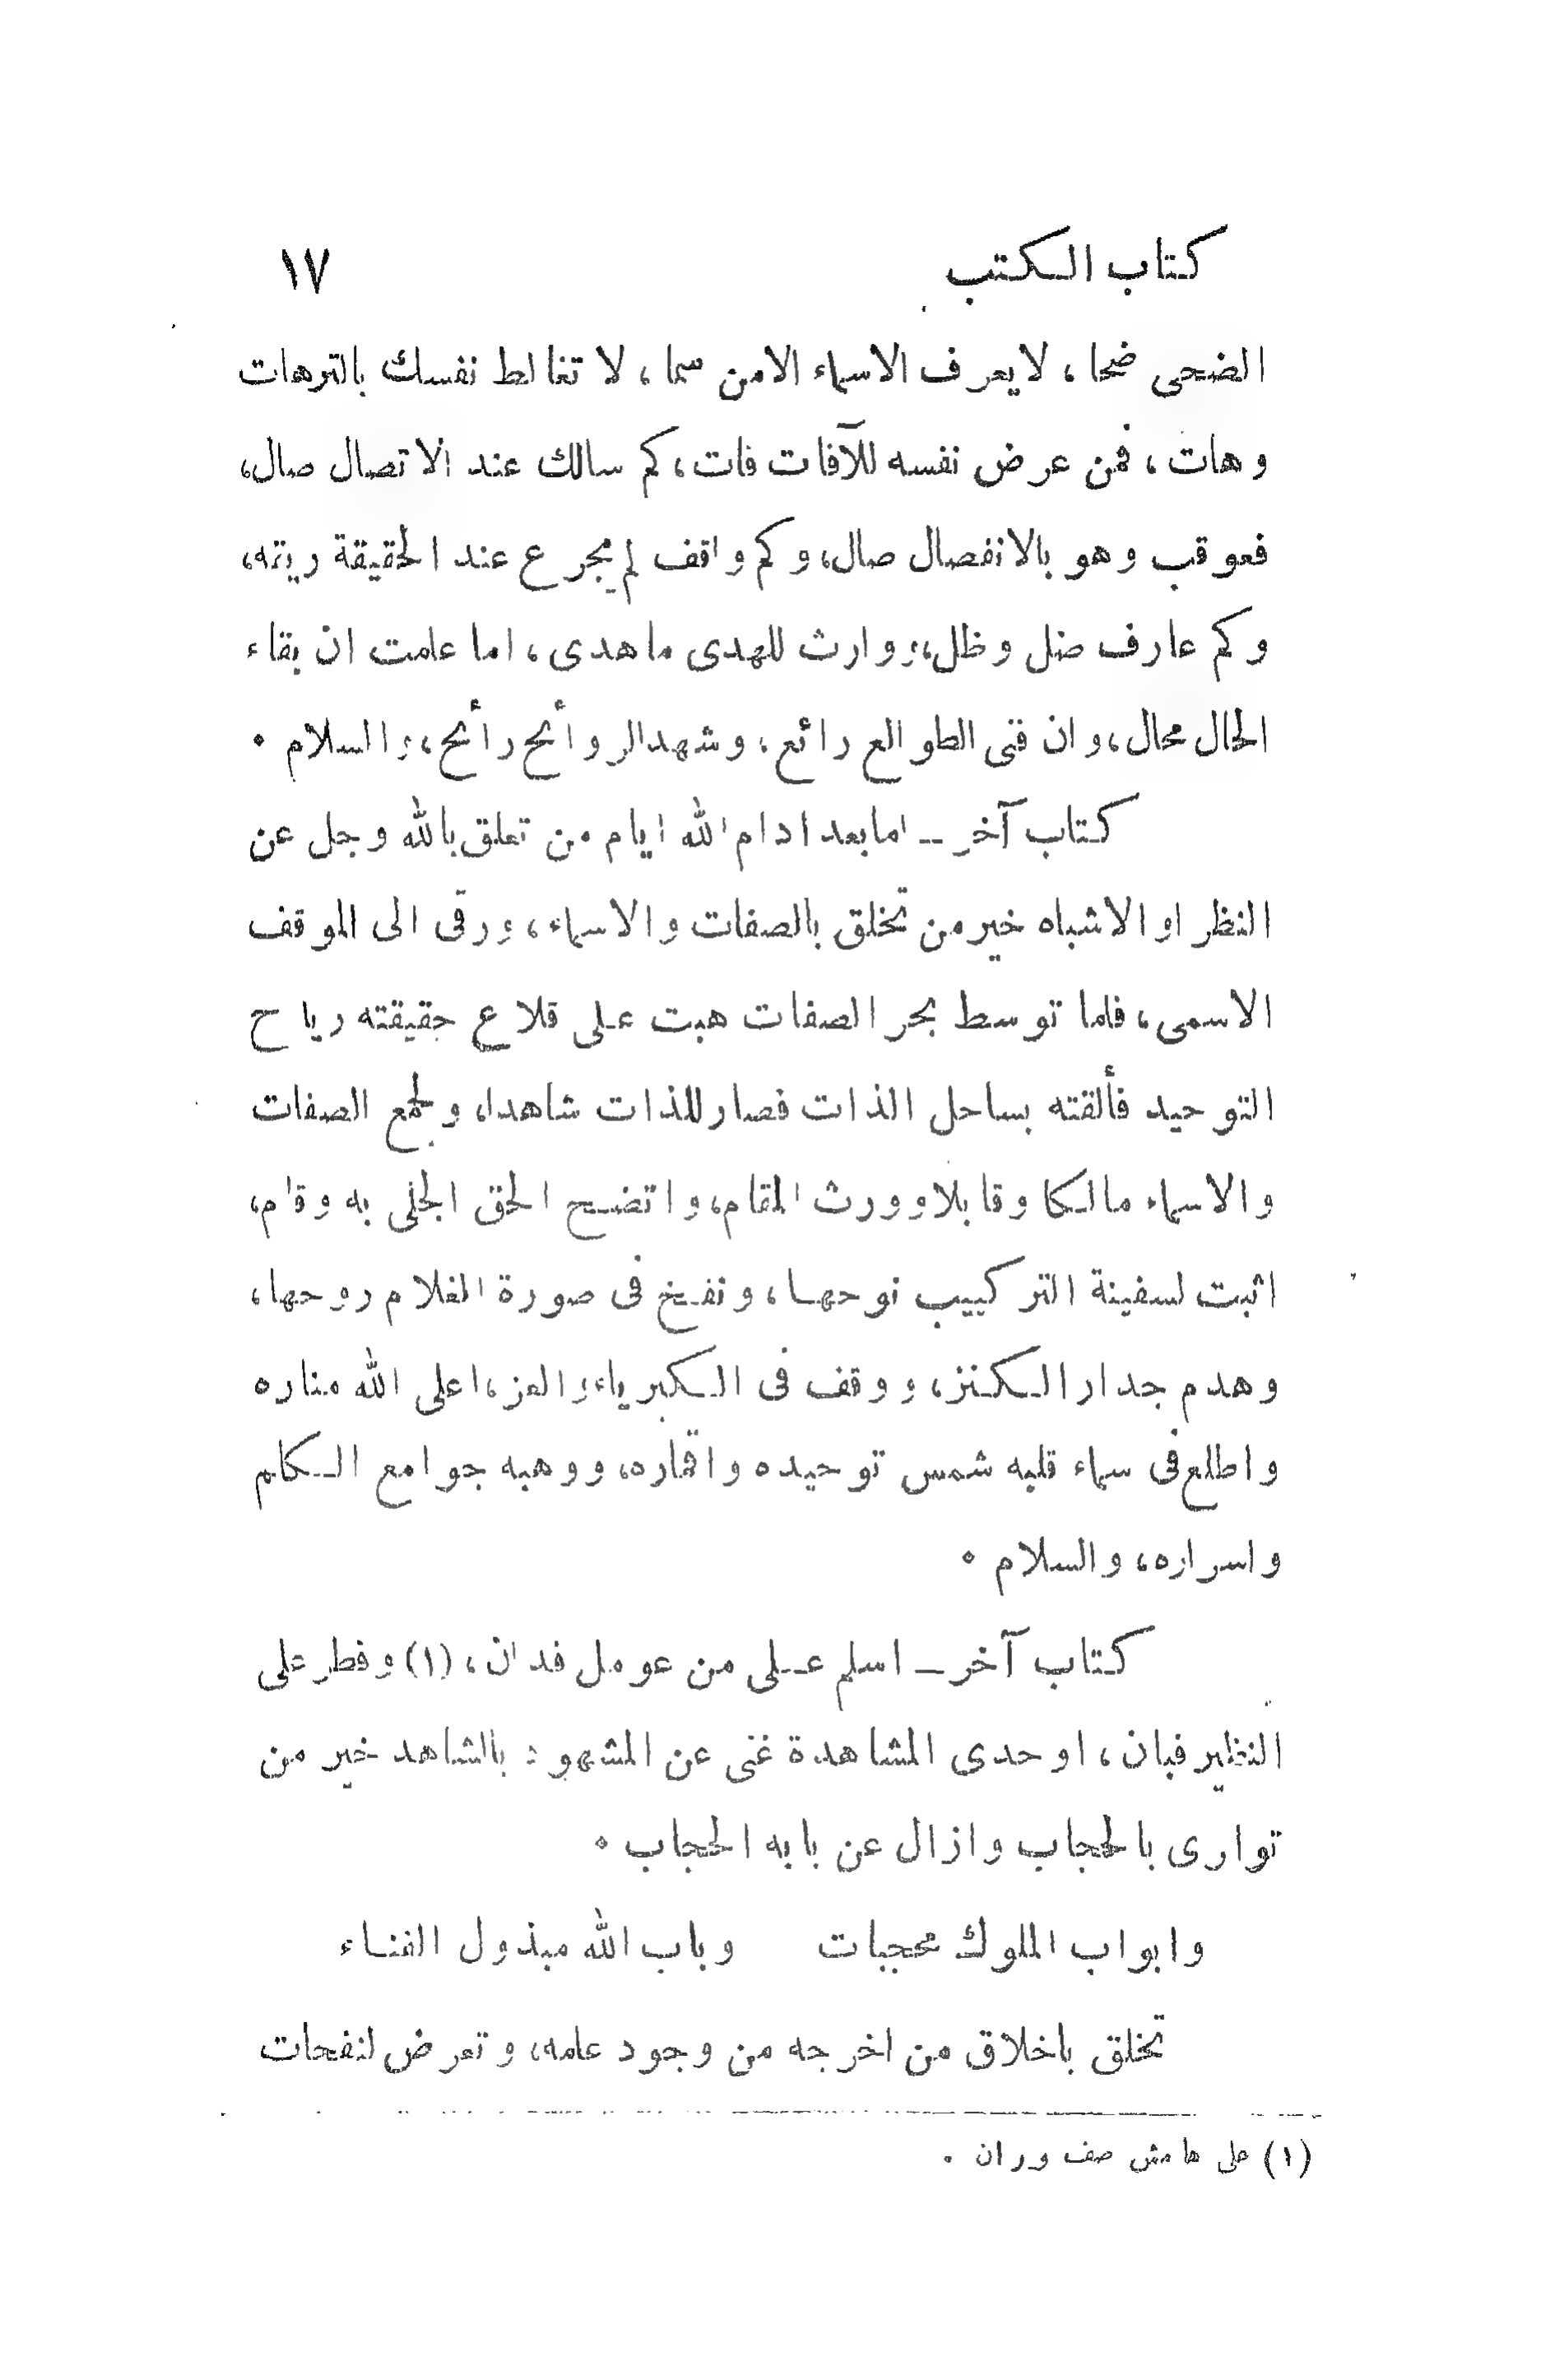 كتاب الكتب ١٧
الضحى ضحا، لا يعرف الاسماء الا من سما، لا تغالط نفسك بالترهات
وهات، فمن عرض نفسه للآفات فات، كم سالك عند الاتصال صال،
فعوقب وهو بالانفصال صال، وكم واقف لم يجرع عند الحقيقة ريقه،
وكم عارف ضل وظل، ووارث للهدى ما هدى، اما علمت ان بقاء
الحال محال، وان فتى الطوالع رائع، وشهد الروائح رائح، والسلام ٠
كتاب آخر – اما بعد ادام الله ايام من تعلق بالله وجل عن
النظر او الاشباه خير من تخلق بالصفات والاسماء، ورقى الى الموقف
الاسمى، فلما توسط بحر الصفات هبت على قلاع حقيقته رياح
التوحيد فألقته بساحل الذات فصار للذات شاهدا، ولجمع الصفات
والاسماء مالكا وقابلا وورث المقام، واتضح الحق الجلى به وقام،
اثبت لسفينة التركيب نوحها، ونفخ فى صورة الغلام روحها،
وهدم جدار الكنز، ووقف فى الكبرياء والعز، اعلى الله مناره
واطلع فى سماء قلبه شمس توحيده واقماره، ووهبه جوامع الكلم
واسراره، والسلام ٠
كتاب آخر – اسلم على من عومل فدان، (١) وفطر على
النظير فبان، اوحدى المشاهدة غنى عن المشهود بالشاهد خير من
توارى بالحجاب وازال عن بابه الحجاب ٠
وابواب الملوك محجبات وباب الله مبذول الفناء
تخلق باخلاق من اخرجه من وجود علمه، وتعرض لنفحات
(١) على هامش صف وران .